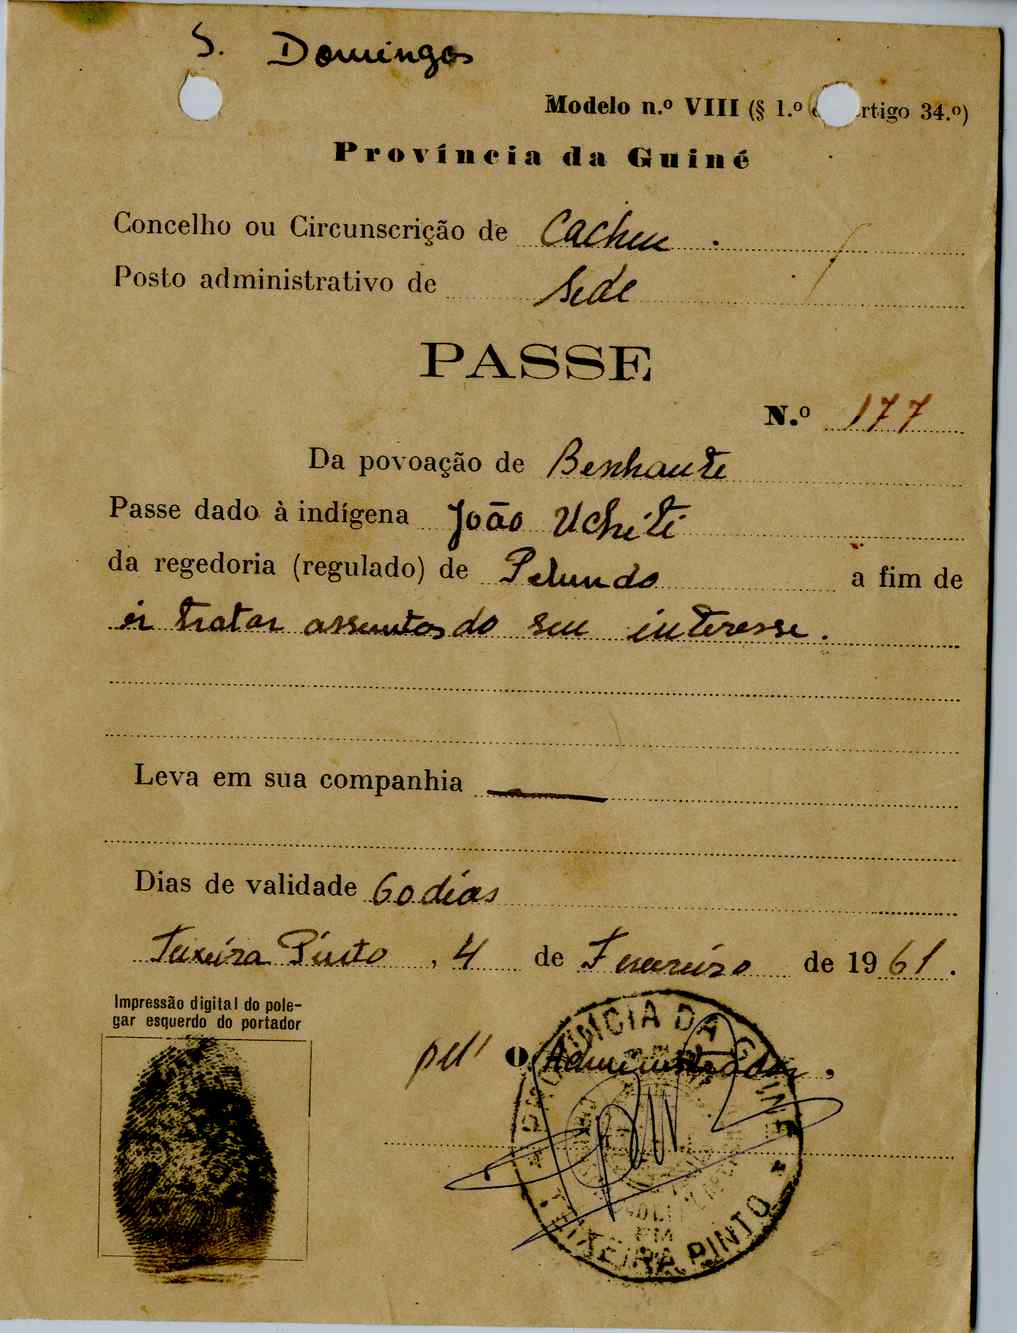 S. Domingos
Modelo n.º VIII (§ 1.º rtigo 34.º)
Província da Guiné
Concelho ou Circunscrição de Cacheu .
Posto administrativo de Sede
PASSE
N.º 177
Da povoação de Benhante
Passe dado à indígena João Uchiti
da regedoria (regulado) de Pelundo a fim de
ir tratar assuntos do seu interesse.
Leva em sua companhia
Dias de validade 60 dias
Teixeira Pinto, 4 de Fevereiro de 1961.
Impressão digital do pole-
gar esquerdo do portador
pel' O Administrador,
PROVÍNCIA DA GUINÉ
EM
TEIXEIRA PINTO